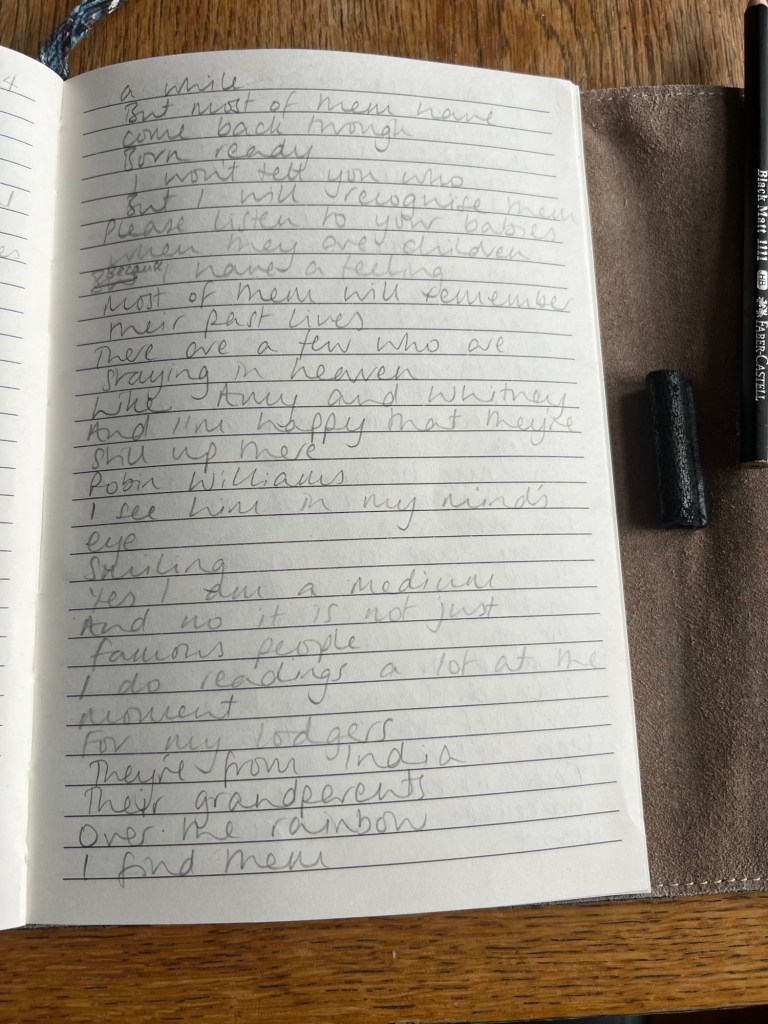 4
a while
But most of them have
come back through
Born ready
I wont tell you who
But I will recognise them
Please listen to your babies
when they are children
Because I have a feeling
Most of them will remember
their past lives
There are a few who are
staying in heaven
Like Amy and Whitney
And I'm happy that they're
still up there
Robin Williams
I see him in my mind's
eye
Smiling
Yes I am a medium
And no it is not just
famous people
I do readings a lot at the
moment
For my lodgers
They're from India
Their grandperents
Over the rainbow
I find them
Black Matt 1111
FABER-CASTELL